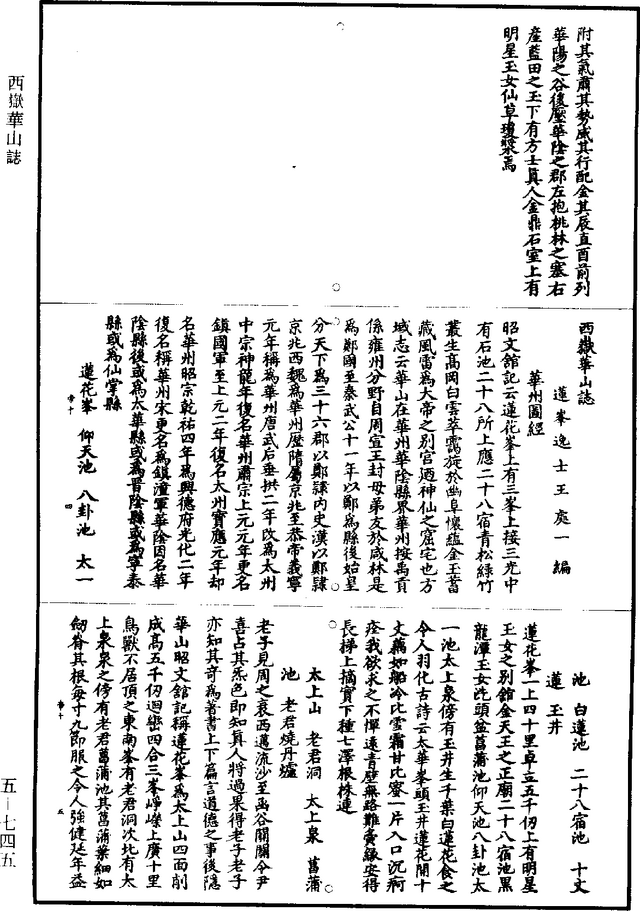 西嶽華山誌
附其氣肅其勢威其行配金其辰直酉前列
華陽之谷後壓華陰之郡左抱桃林之塞右
產藍田之玉下有方士真人金鼎石室上有
明星玉女仙草瓊漿焉
西嶽華山誌
蓮峯逸士王處一編
華州圖經
昭文館記云蓮花峯上有三峯上接三光中
有石池二十八所上應二十八宿青松綠竹
叢生高岡白雲翠靄旋於幽阜懷蘊金玉蓄
藏風雷為大帝之別宮廼神仙之窟宅也方
域志云華山在華州華陰縣界華州按禹貢
係雍州分野自周宣王封母弟友於咸林是
為鄭國至秦武公十一年以鄭為縣後始皇
分天下為三十六郡以鄭隸內史漢以鄭隸
京兆西魏為華州歷隋屬京兆至恭帝義寧
元年稱為華州唐武后垂拱二年改為太州
中宗神龍年復名華州肅宗上元元年更名
鎮國軍至上元二年復名太州寶應元年却
名華州昭宗乾祐四年為興德府光化二年
復名稱華州宋更名為鎮潼軍華陰因名華
陰縣後或為太華縣或為晉陰縣或為寧泰
縣或為仙掌縣
蓮花峯 仰天池 八卦池 太一
池 白蓮池 二十八宿池 十丈
蓮 玉井
蓮花峯一上四十里卓立五千仞上有明星
玉女之別館金天王之正廟二十八宿池黑
龍潭玉女洗頭盆菖蒲池仰天池八卦池太
一池太上泉傍有玉井生千葉白蓮花食之
令人羽化古詩云太華峯頭玉井蓮花開十
丈藕如船冷比雪霜甘比蜜一片入口沉痾
痊我欲求之不憚遠青壁無路難夤緣安得
長梯上摘實下種七澤根株連
太上山 老君洞 太上泉 菖蒲
池 老君燒丹爐
老子見周之衰西邁流沙至函谷關關令尹
喜占其炁色即知真人將過果得老子老子
亦知其奇為著書上下篇言道德之事後隱
華山昭文館記稱蓮花峯為太上山四面削
成高五千仞迴巒四合三峯崢嶸上廣十里
鳥獸不居頂之東南峯有老君洞次北有太
上泉泉之傍有老君菖蒲池其菖蒲葉細如
劒脊其根每寸九節服之令人強健延年益
五－七四五